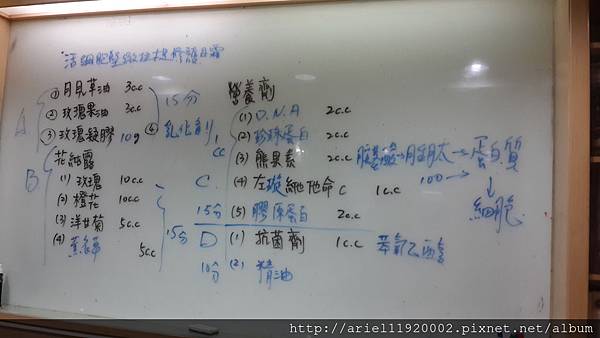 活細胞
A
① 月見草油 3c.c
② 玫瑰果油 3c.c
③ 玫瑰凝膠 10g
15分
④ 乳化劑
1cc
B
花純露
(1) 玫瑰 10c.c
(2) 橙花 10cc
(3) 洋甘菊 5c.c
(4)
5cc
15分
C
15分
營養劑
(1) D.N.A 2c.c
(2) 珍珠蛋白 2c.c
(3) 熊果素 2c.c
(4) 左璇維他命C 1c.c
(5) 膠原蛋白 2cc
D
10分
(1) 抗菌劑 1c.c 苯氧乙醇
(2) 精油
胺基酸→胜肽→蛋白質
100→
↓
細胞
http://ariel11920002.pixnet.net/album